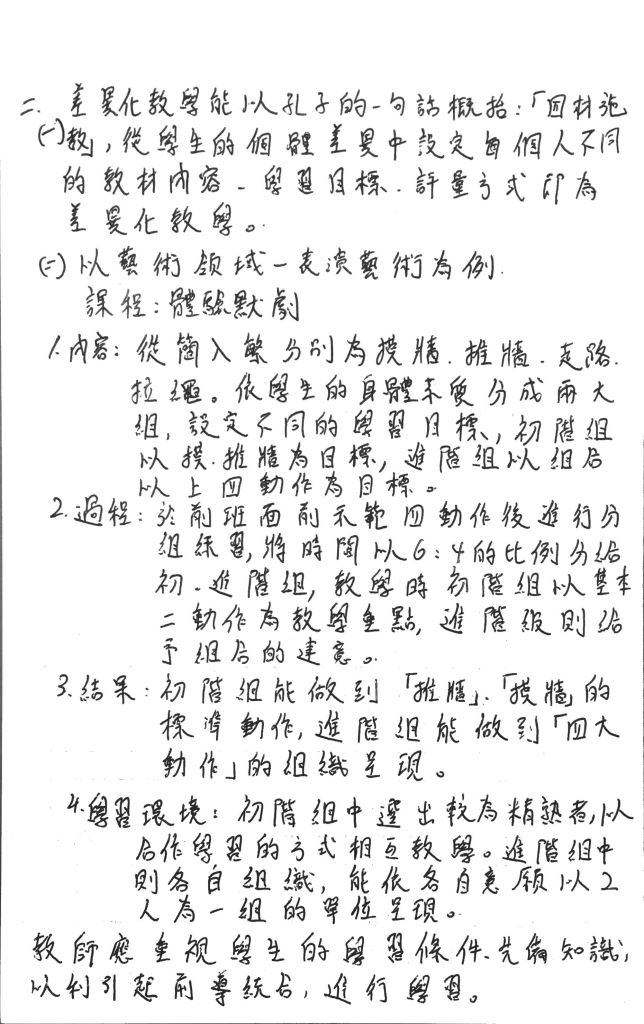 二. 差異化教學能以孔子的一句話概括:「因材施
(一)教」,從學生的個體差異中設定每個人不同
的教材內容、學習目標、評量方式即為
差異化教學。
(二)以藝術領域-表演藝術為例.
課程:體驗默劇
1.內容:從簡入繁分別為摸牆.推牆.走路.
拉繩。依學生的身體素質分成兩大
組,設定不同的學習目標,初階組
以摸.推牆為目標,進階組以組合
以上四動作為目標。
2.過程:於前班面前示範四動作後進行分
組練習,將時間以6:4的比例分給
初、進階組,教學時初階組以基本
二動作為教學重點,進階級則給
予組合的建意。
3.結果:初階組能做到「推牆」、「摸牆」的
標準動作,進階組能做到「四大
動作」的組織呈現。
4.學習環境:初階組中選出較為精熟者,以
合作學習的方式相互教學。進階組中
則各自組織,能依各自意願以2
人為一組的單位呈現。
教師應重視學生的學習條件、先備知識,
以利引起前導統合,進行學習。